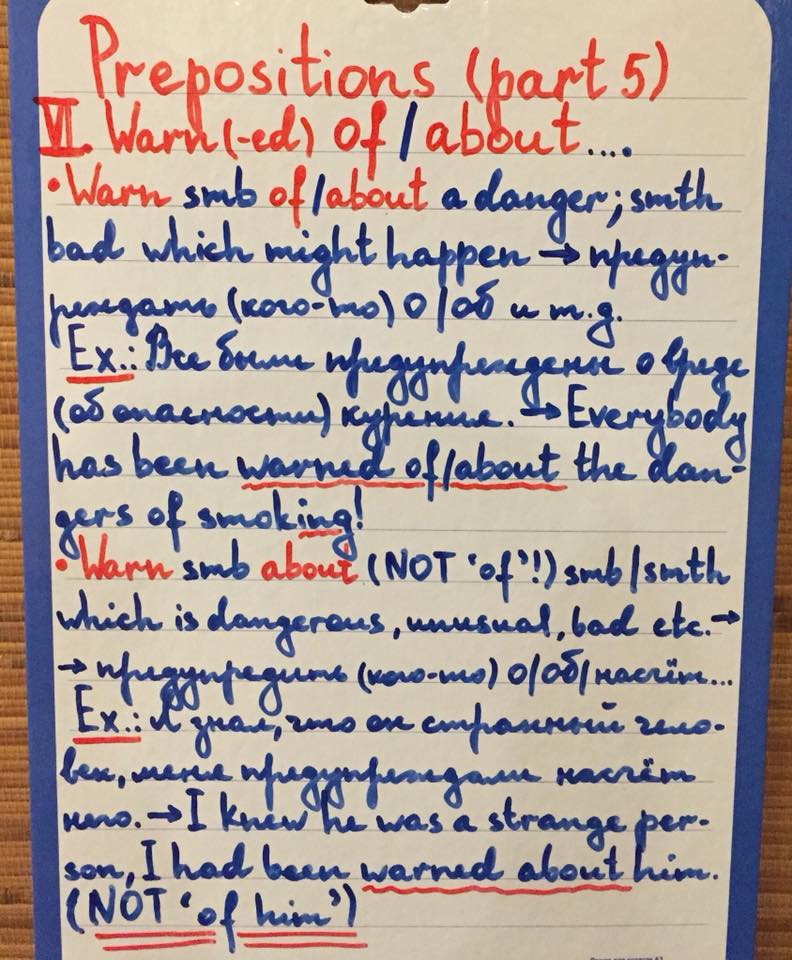 Prepositions (part 5)
VI. Warn(-ed) of/about....
• Warn smb of/about a danger; smth
bad which might happen → предуп-
реждать (кого-то) о/об и т.д.
Ex.: Все были предупреждены о вреде
(об опасности) курения. → Everybody
has been warned of/about the dan-
gers of smoking!
• Warn smb about (NOT 'of'!) smb/smth
which is dangerous, unusual, bad etc. →
→ предупредить (кого-то) о/об/насчёт...
Ex.: Я знал, что он странный чело-
век, меня предупреждали насчёт
него. → I knew he was a strange per-
son, I had been warned about him.
(NOT 'of him')